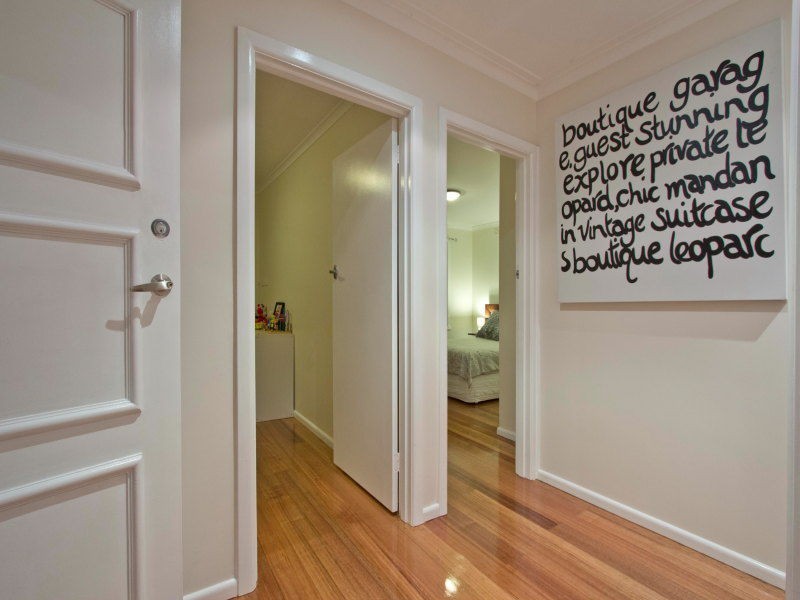 boutique garag
e, guest stunning
explore, private le
opard, chic mandan
in vintage suitcase
s boutique leoparc